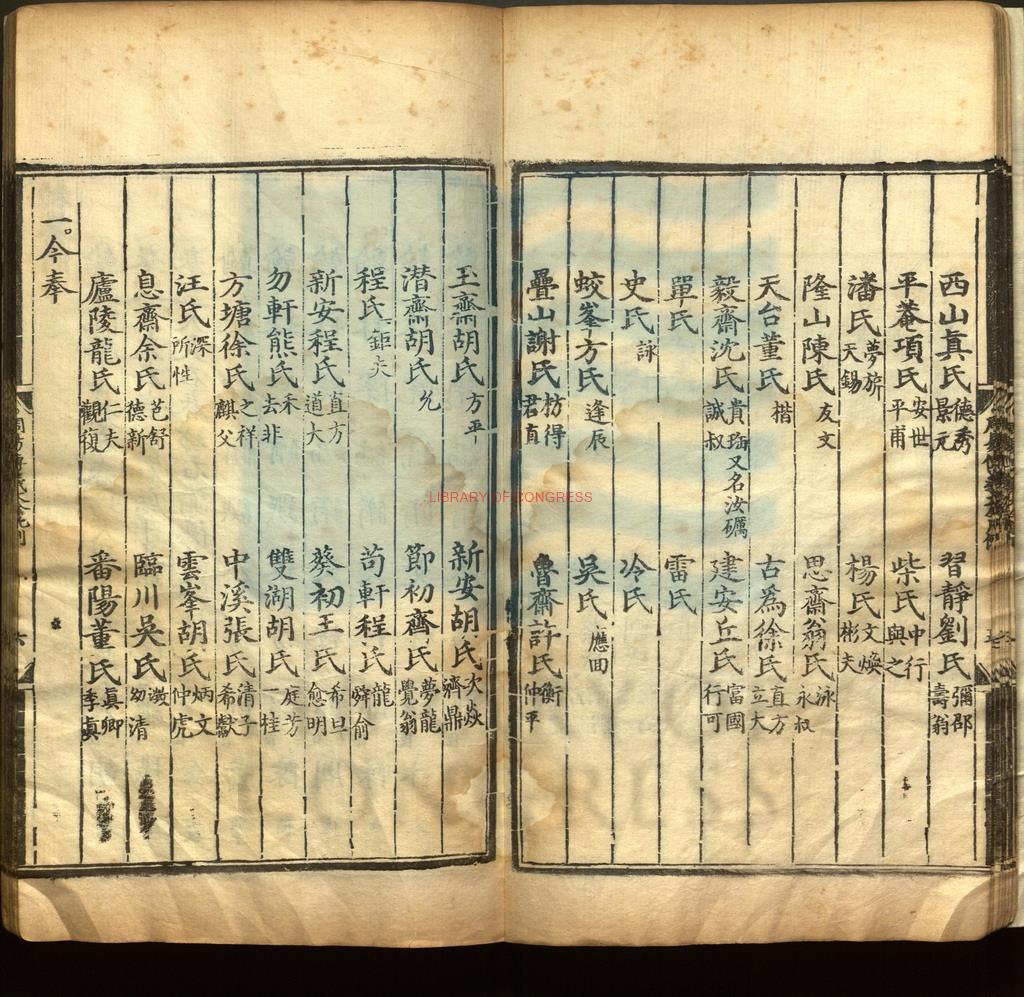 西山真氏 德秀 景元 習靜劉氏 彌邵 壽翁
平菴項氏 安世 平甫 柴氏 中行 與之
潘氏 夢旂 天錫 楊氏 文煥 彬夫
隆山陳氏 友文 思齋翁氏 泳 永叔
天台董氏 楷 古為徐氏 直方 立大
毅齋沈氏 貴珤 誠叔 又名汝礪 建安丘氏 富國 行可
單氏 雷氏
史氏 詠 冷氏
蛟峯方氏 逢辰 吳氏 應回
疊山謝氏 枋得 君直 魯齋許氏 衡 仲平
玉齋胡氏 方平 新安胡氏 次焱 濟鼎
潜齋胡氏 允 節初齊氏 夢龍 覺翁
程氏 鉅夫 苟軒程氏 龍 舜俞
新安程氏 直方 道大 葵初王氏 希旦 愈明
勿軒熊氏 禾 去非 雙湖胡氏 庭芳 一桂
方塘徐氏 之祥 麒父 中溪張氏 清子 希獻
汪氏 深 所性 雲峯胡氏 炳文 仲虎
息齋余氏 芑舒 德新 臨川吳氏 澂 幼清
廬陵龍氏 仁夫 觀復 番陽董氏 真卿 季真
一今奉
六
LIBRARY OF CONGRESS